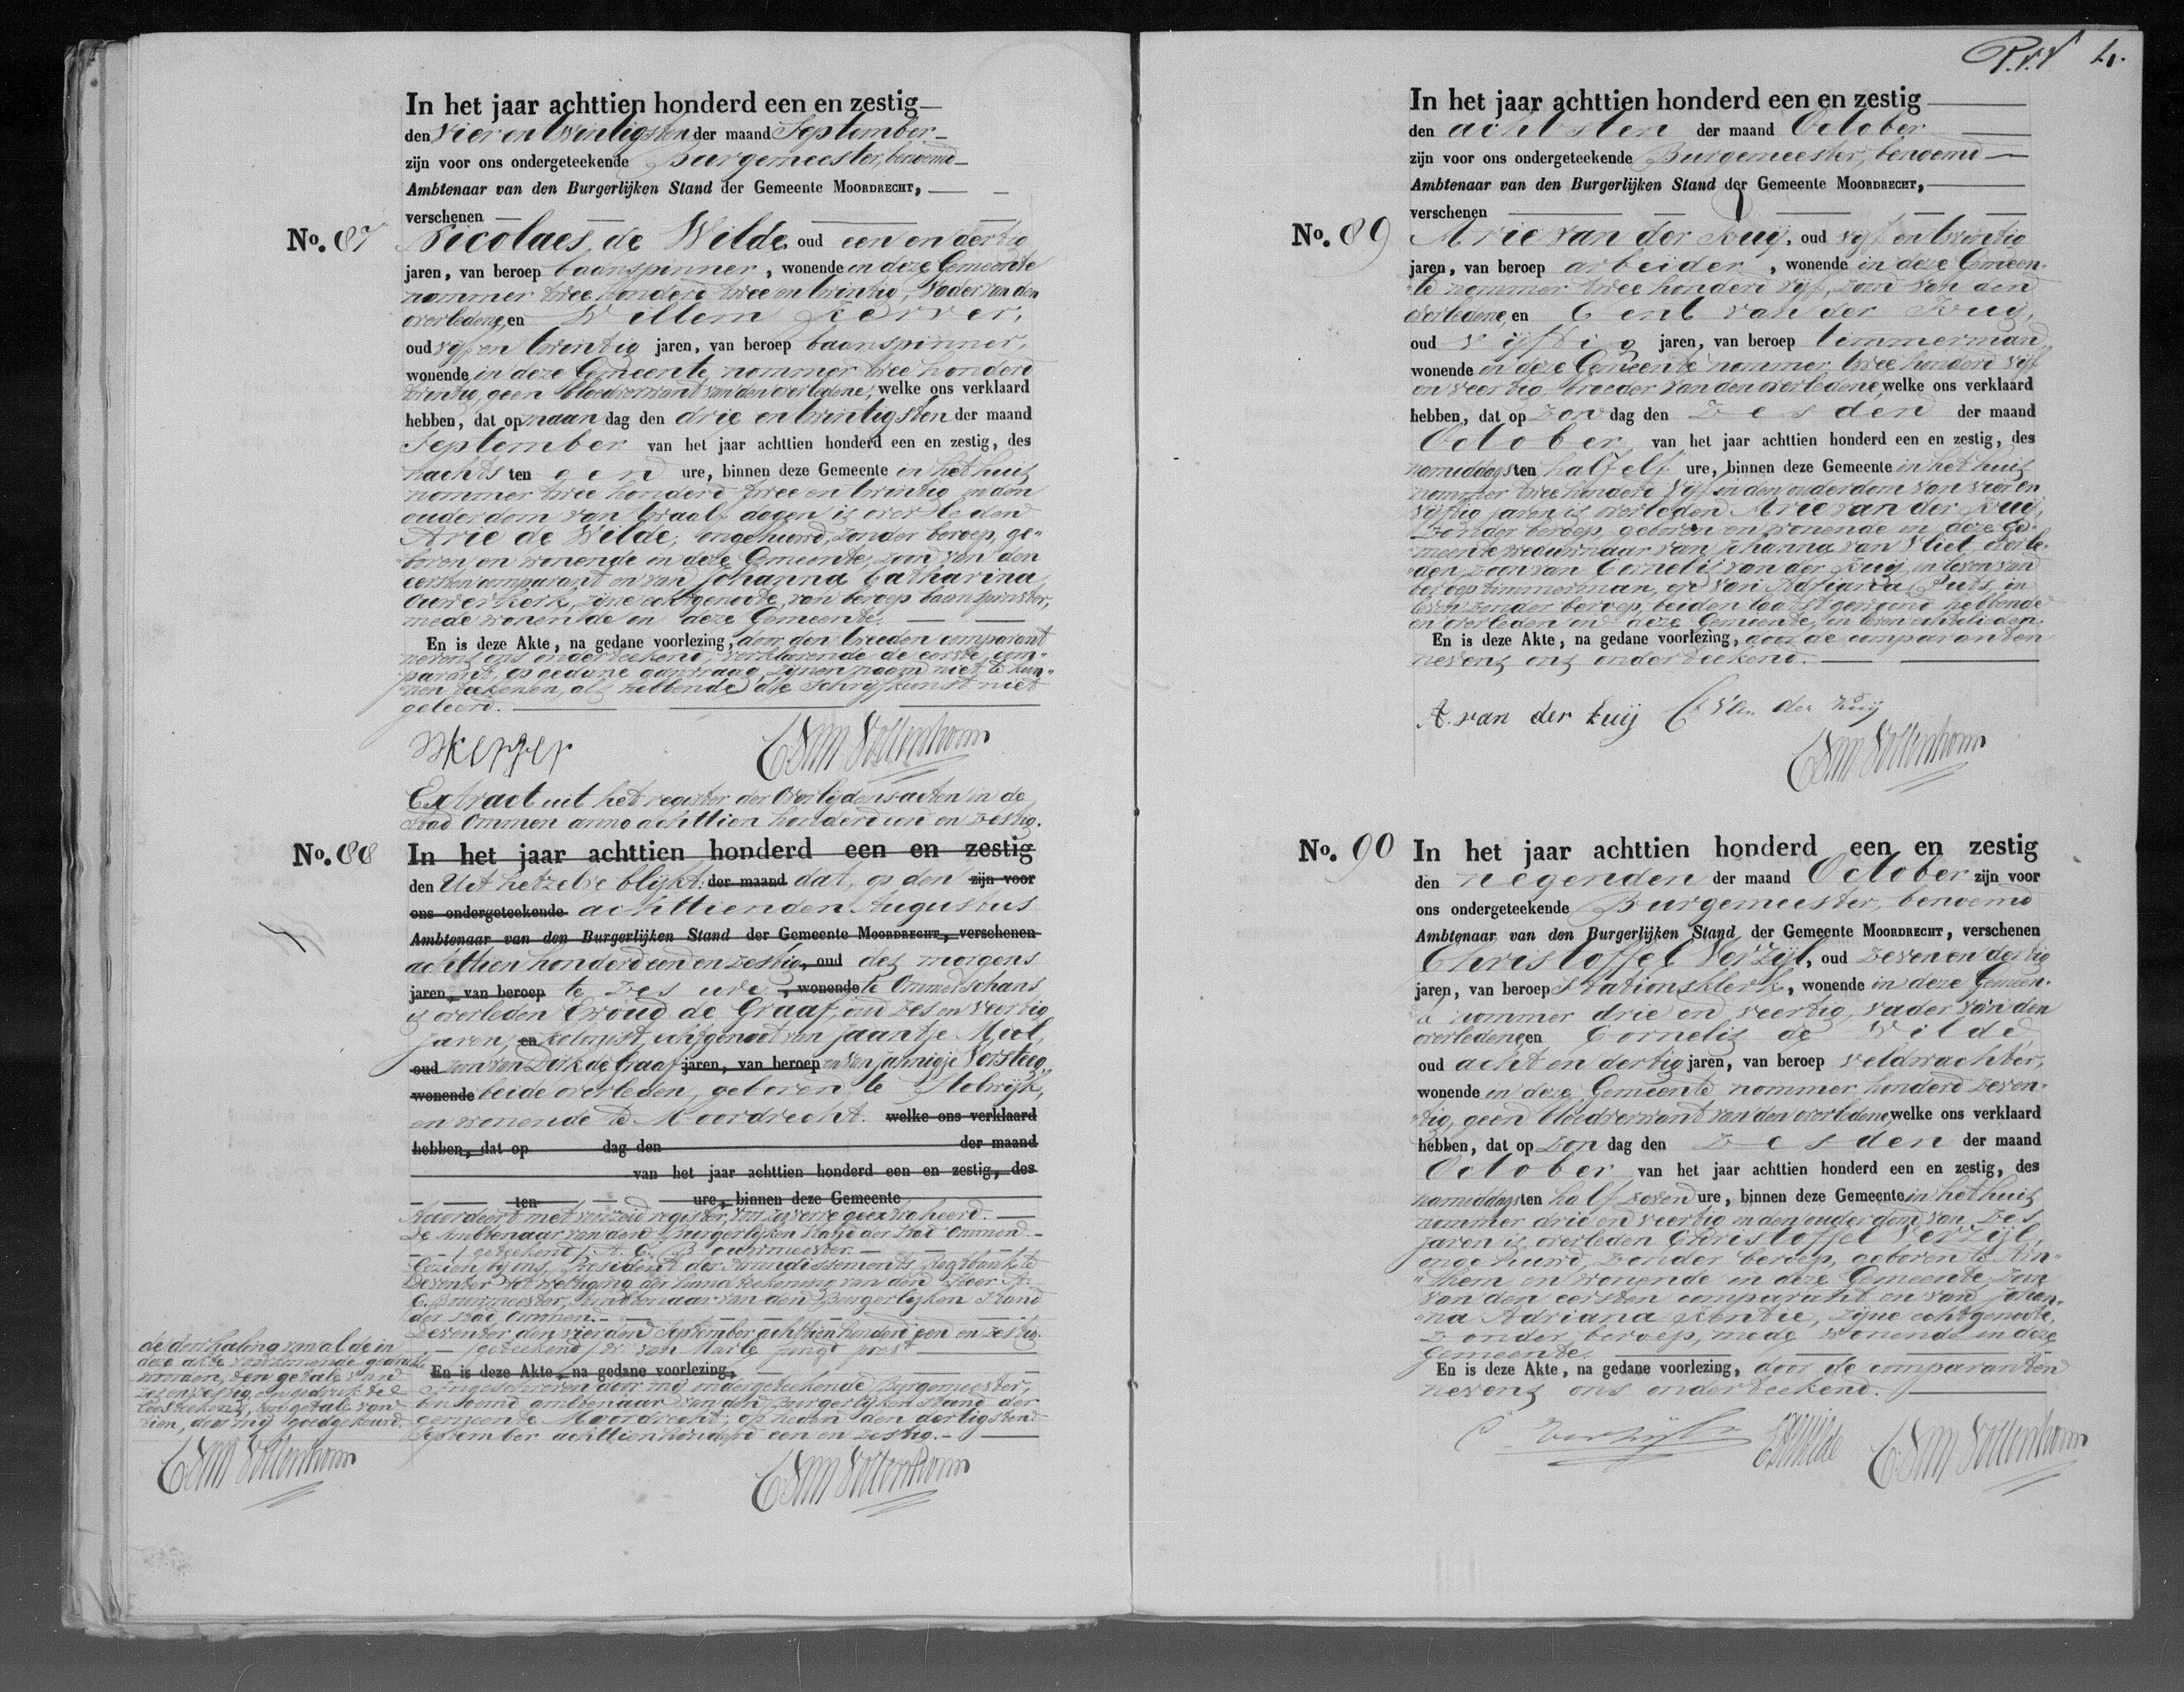 In het jaar achttien honderd een en zestig
den vier en twintigsten der maand September
zijn voor ons ondergeteekende Burgemeester, benoemd
Ambtenaar van den Burgerlijken Stand der Gemeente MOORDRECHT,
verschenen
No. 87 Nicolaes de Wilde, oud een en dertig
jaren, van beroep baanspinner, wonende in deze Gemeente
nommer twee honderd twee en twintig, vader van den
overledene, en Willem Kerver,
oud vijf en twintig jaren, van beroep baanspinner,
wonende in deze Gemeente nommer twee honderd
twintig, geen bloedverwant van den overledene, welke ons verklaard
hebben, dat op maan dag den drie en twintigsten der maand
September van het jaar achttien honderd een en zestig, des
nachts ten een ure, binnen deze Gemeente in het huis
nommer twee honderd twee en twintig in den
ouderdom van twaalf dagen is overleden
Arie de Wilde, ongehuwd, zonder beroep, ge-
boren en wonende in deze Gemeente, zoon van den
eersten comparant en van Johanna Catharina
Ouwerkerk, zijne echtgenoote, van beroep baanspinster,
mede wonende in deze Gemeente.
En is deze Akte, na gedane voorlezing, door den tweeden comparant
nevens ons onderteekend, verklarende de eerste com-
parant, op gedane aanvraag, zijnen naam niet te kun-
nen teekenen, als hebbende de schrijfkunst niet
geleerd.
W Kerver C van Vollenhoven
Extract uit het register der Overlijdensacten in de
Stad Ommen anno achttien honderd een en zestig.
No. 88 In het jaar achttien honderd een en zestig
den Uit hetzelve blijkt: der maand dat, op den zijn voor
ons ondergeteekende achttienden Augustus
Ambtenaar van den Burgerlijken Stand der Gemeente MOORDRECHT, verschenen
achttien honderd een en zestig, oud des morgens
jaren, van beroep te zes ure, wonende te Ommerschans
is overleden Ewoud de Graaf, oud zes en veertig
jaren, en kolonist, echtgenoot van Jaantje Mool,
oud zoon van Dirk de Graaf jaren, van beroep en van Jannigje Versteeg,
wonende beide overleden, geboren te Stolwijk,
en wonende te Moordrecht. welke ons verklaard
hebben, dat op dag den der maand
van het jaar achttien honderd een en zestig, des
ten ure, binnen deze Gemeente
Accordeert met voorzeid register, voor zoverre geëxtraheerd.
De Ambtenaar van den Burgerlijken Stand der Stad Ommen
/geteekend/ A. C. Bouwmeester
Gezien bij ons, President der Arrondissements Regtbank te
Deventer tot wettiging der handteekening van den Heer A.
C. Bouwmeester, Ambtenaar van den Burgerlijken Stand
der Stad Ommen.
Deventer den vierden September achttien honderd een en zestig.
/geteekend/ van Marle
En is deze Akte, na gedane voorlezing,
Ingeschreven door mij ondergeteekende Burgemeester,
benoemd ambtenaar van den Burgerlijken stand der
gemeente Moordrecht, op heden den dertigsten
September achttien honderd een en zestig.
C van Vollenhoven
de derhaling van al de in
deze akte voorkomende gedrukte
woorden, ten getale van
zes en zestig, en gedrukte
leesteekens, ten getale van
tien, door mij goedgekeurd.
C van Vollenhoven
In het jaar achttien honderd een en zestig
den achtsten der maand October
zijn voor ons ondergeteekende Burgemeester, benoemd
Ambtenaar van den Burgerlijken Stand der Gemeente MOORDRECHT,
verschenen
No. 89 Arie van der Kuij, oud vijf en twintig
jaren, van beroep arbeider, wonende in deze Gemeen-
te nommer twee honderd vijf, zoon van den
overledene, en Cent van der Kuij,
oud vijftig jaren, van beroep timmerman,
wonende in deze Gemeente nommer twee honderd vijf
en veertig, broeder van den overledene, welke ons verklaard
hebben, dat op zon dag den zesden der maand
October van het jaar achttien honderd een en zestig, des
namiddags ten half elf ure, binnen deze Gemeente in het huis
nommer twee honderd vijf in den ouderdom van vier en
vijftig jaren is overleden Arie van der Kuij,
zonder beroep, geboren en wonende in deze Ge-
meente weduwnaar van Johanna van Vliet, overle-
den, zoon van Cornelis van der Kuij, in leven van
beroep timmerman, en van Adriana Puts, in
leven zonder beroep, beiden laatst gewoond hebbende
en overleden in deze Gemeente, in leven echtelieden.
En is deze Akte, na gedane voorlezing, door de comparanten
nevens ons onderteekend.
A. van der kuij C van der kuij
C van Vollenhoven
No. 90 In het jaar achttien honderd een en zestig
den negenden der maand October zijn voor
ons ondergeteekende Burgemeester, benoemd
Ambtenaar van den Burgerlijken Stand der Gemeente MOORDRECHT, verschenen
Christoffel Verzijl, oud zeven en dertig
jaren, van beroep Stationsklerk, wonende in deze Gemeen-
te nommer drie en veertig, vader van den
overledene, en Cornelis de Wilde,
oud acht en dertig jaren, van beroep veldwachter,
wonende in deze Gemeente nommer honderd zeven-
tig, geen bloedverwant van den overledene, welke ons verklaard
hebben, dat op zon dag den zesden der maand
October van het jaar achttien honderd een en zestig, des
namiddags ten half zeven ure, binnen deze Gemeente in het huis
nommer drie en veertig in den ouderdom van zes
jaren is overleden Christoffel Verzijl,
ongehuwd, zonder beroep, geboren te Arn-
hem en wonende in deze Gemeente, zoon
van den eersten comparant en van Johan-
na Adriana Kentie, zijne echtgenoote,
zonder beroep, mede wonende in deze
Gemeente.
En is deze Akte, na gedane voorlezing, door de comparanten
nevens ons onderteekend.
C. Verzijl C d Wilde C van Vollenhoven